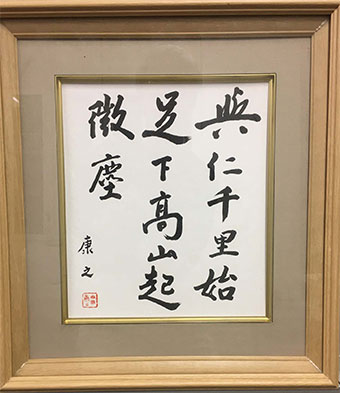 與仁千里始
足下高山起
微塵
康之